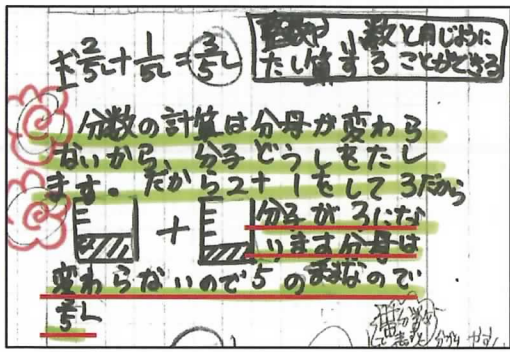 式 2/5L+1/5L=3/5L
整数や小数と同じように
たし算することができる
分数の計算は分母が変わら
ないから、分子どうしをたし
ます。だから2+1をして3だから
+ 分子が3にな
ります分母は
変わらないので5のままなので
3/5L
分かりやすい